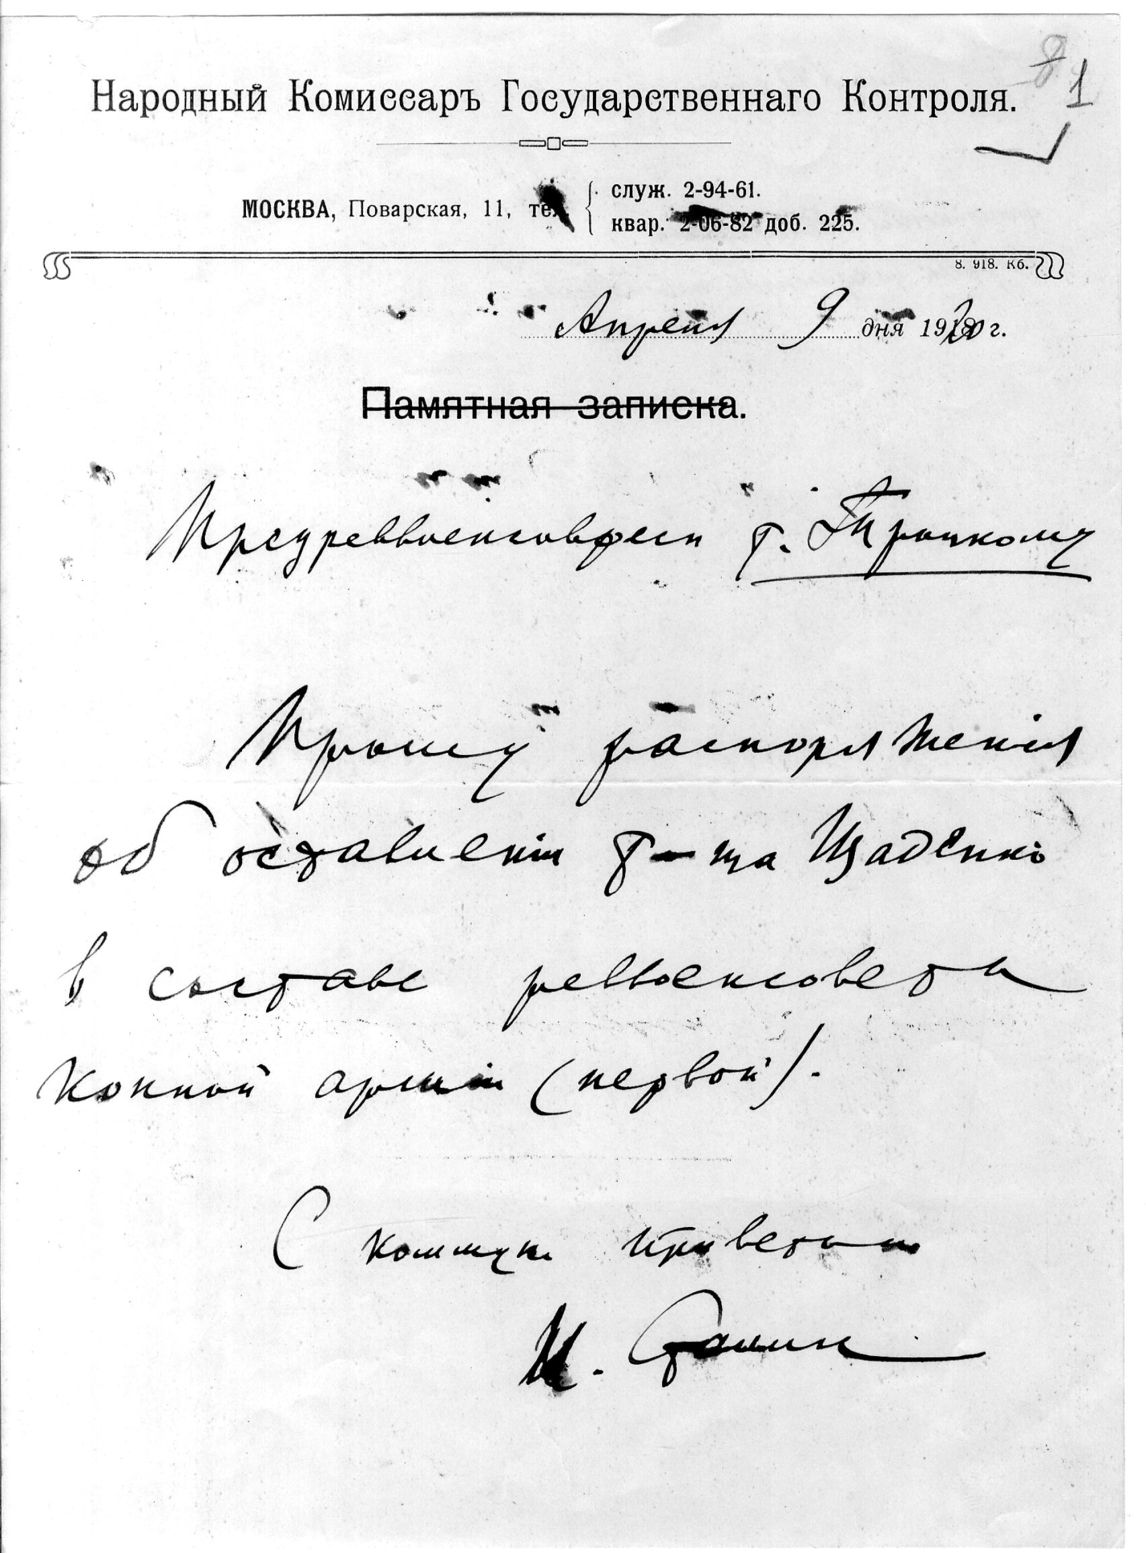 1
Народный Комиссаръ Государственнаго Контроля.
МОСКВА, Поварская, 11, тел.
служ. 2-94-61.
квар. 2-06-82 доб. 225.
8. 918. Кб.
Апреля 9 дня 1920 г.
Памятная записка.
Предреввоенсовресп т. Троцкому
Прошу распоряжения
об оставленiи т-ща Щаденко
в составе реввоенсовета
Конной армiи (первой).
С коммун. приветом
И. Сталин